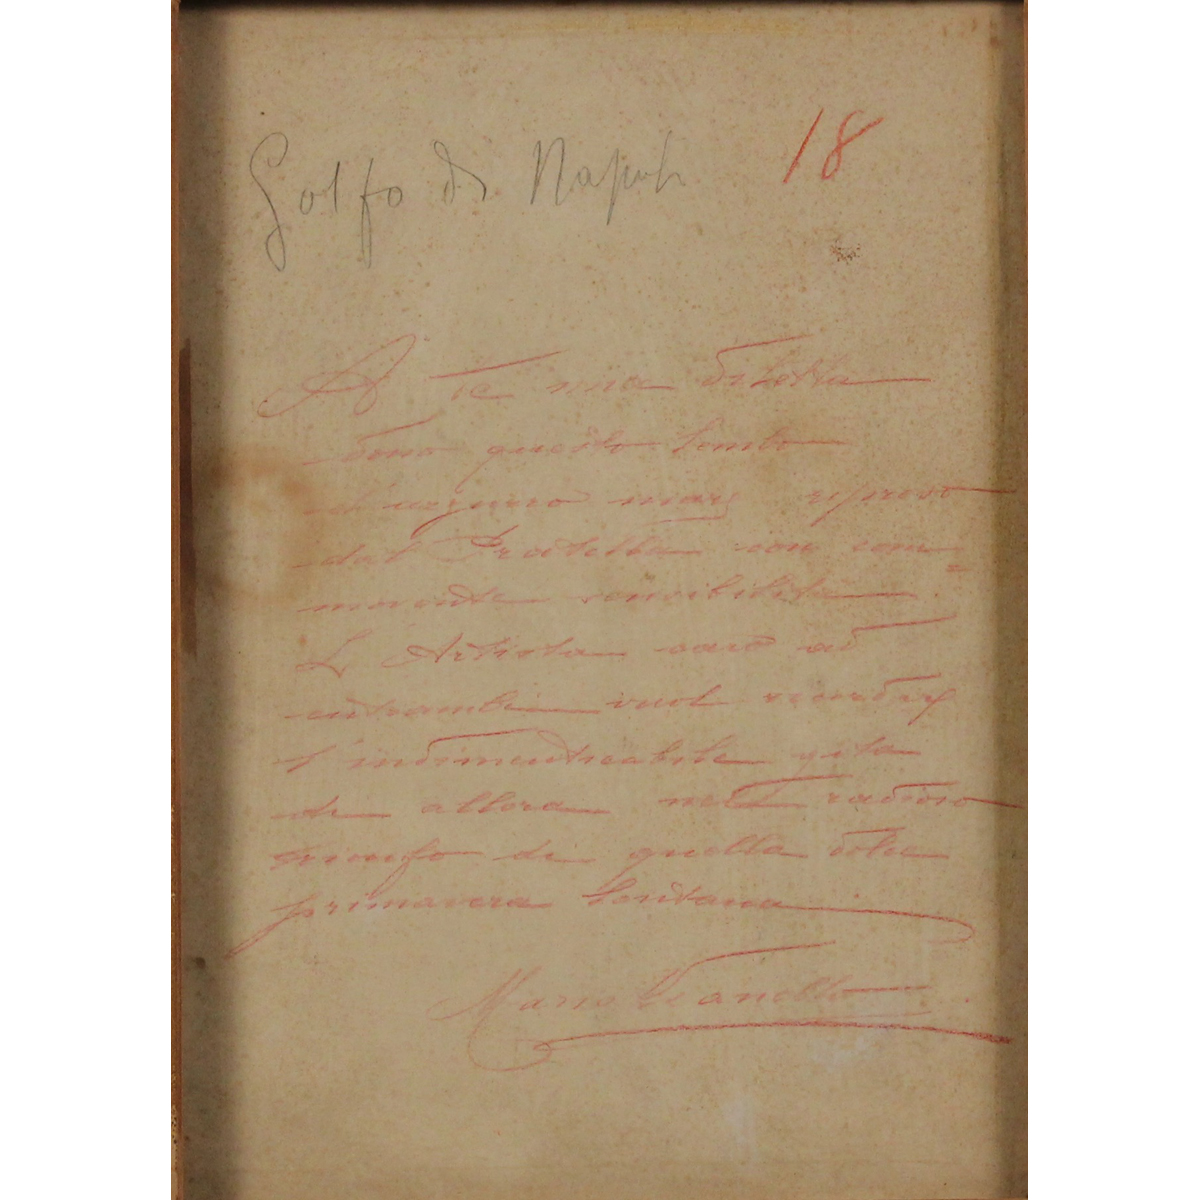 Golfo di Napoli 18
A te mia diletta
dono questo lembo
d'azzurro mare ripreso
dal Fratella con com=
movente sensibilita.
L'Artista caro ad
entrambi vuol ricordare
l'indimenticabile gita
di allora nel radioso
trionfo di quella dolce
primavera lontana
Mario